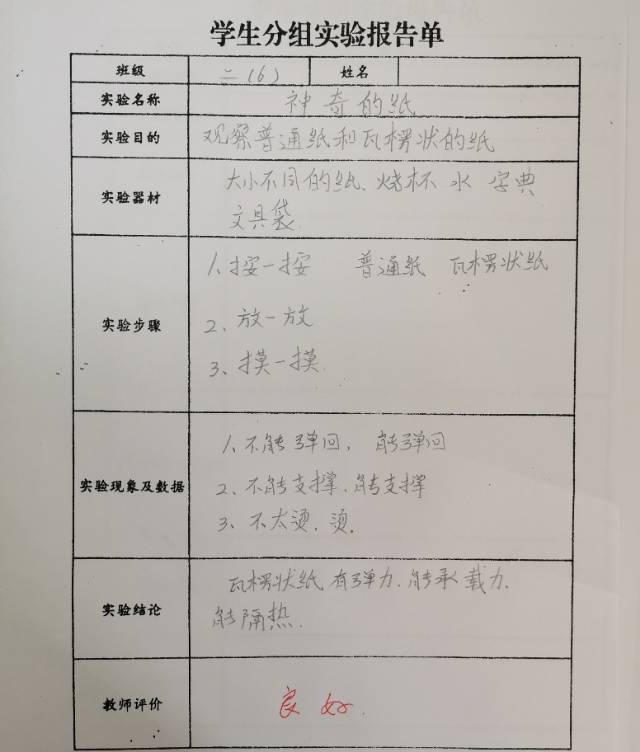 学生分组实验报告单
班级 二(6) 姓名
实验名称 神奇的纸
实验目的 观察普通纸和瓦楞状的纸
实验器材 大小不同的纸、烧杯 水 字典
文具袋
实验步骤 1、按一按 普通纸 瓦楞状纸
2、放一放
3、摸一摸
实验现象及数据 1、不能弹回, 能弹回
2、不能支撑、能支撑
3、不太烫. 烫.
实验结论 瓦楞状纸有弹力、能承载力、
能隔热.
教师评价 良好.